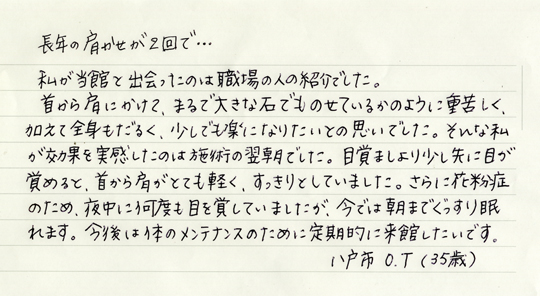 長年の肩かせが2回で…
私が当館と出会ったのは職場の人の紹介でした。
首から肩にかけて、まるで大きな石でものせているかのように重苦しく、
加えて全身もだるく、少しでも楽になりたいとの思いでした。そんな私
が効果を実感したのは施術の翌朝でした。目覚ましより少し先に目が
覚めると、首から肩がとても軽く、すっきりとしていました。さらに花粉症
のため、夜中に何度も目を覚していましたが、今では朝までぐっすり眠
れます。今後は体のメンテナンスのために定期的に来館したいです。
八戸市 O.T(35歳)